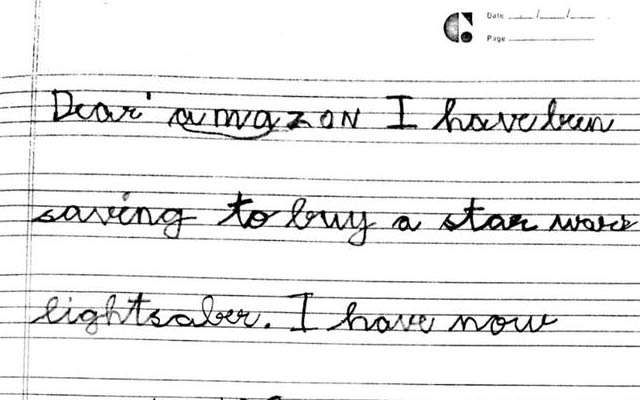 Date ___/___/___
Page ___
Dear' amazon I have been
saving to buy a star wars
lightsaber. I have now